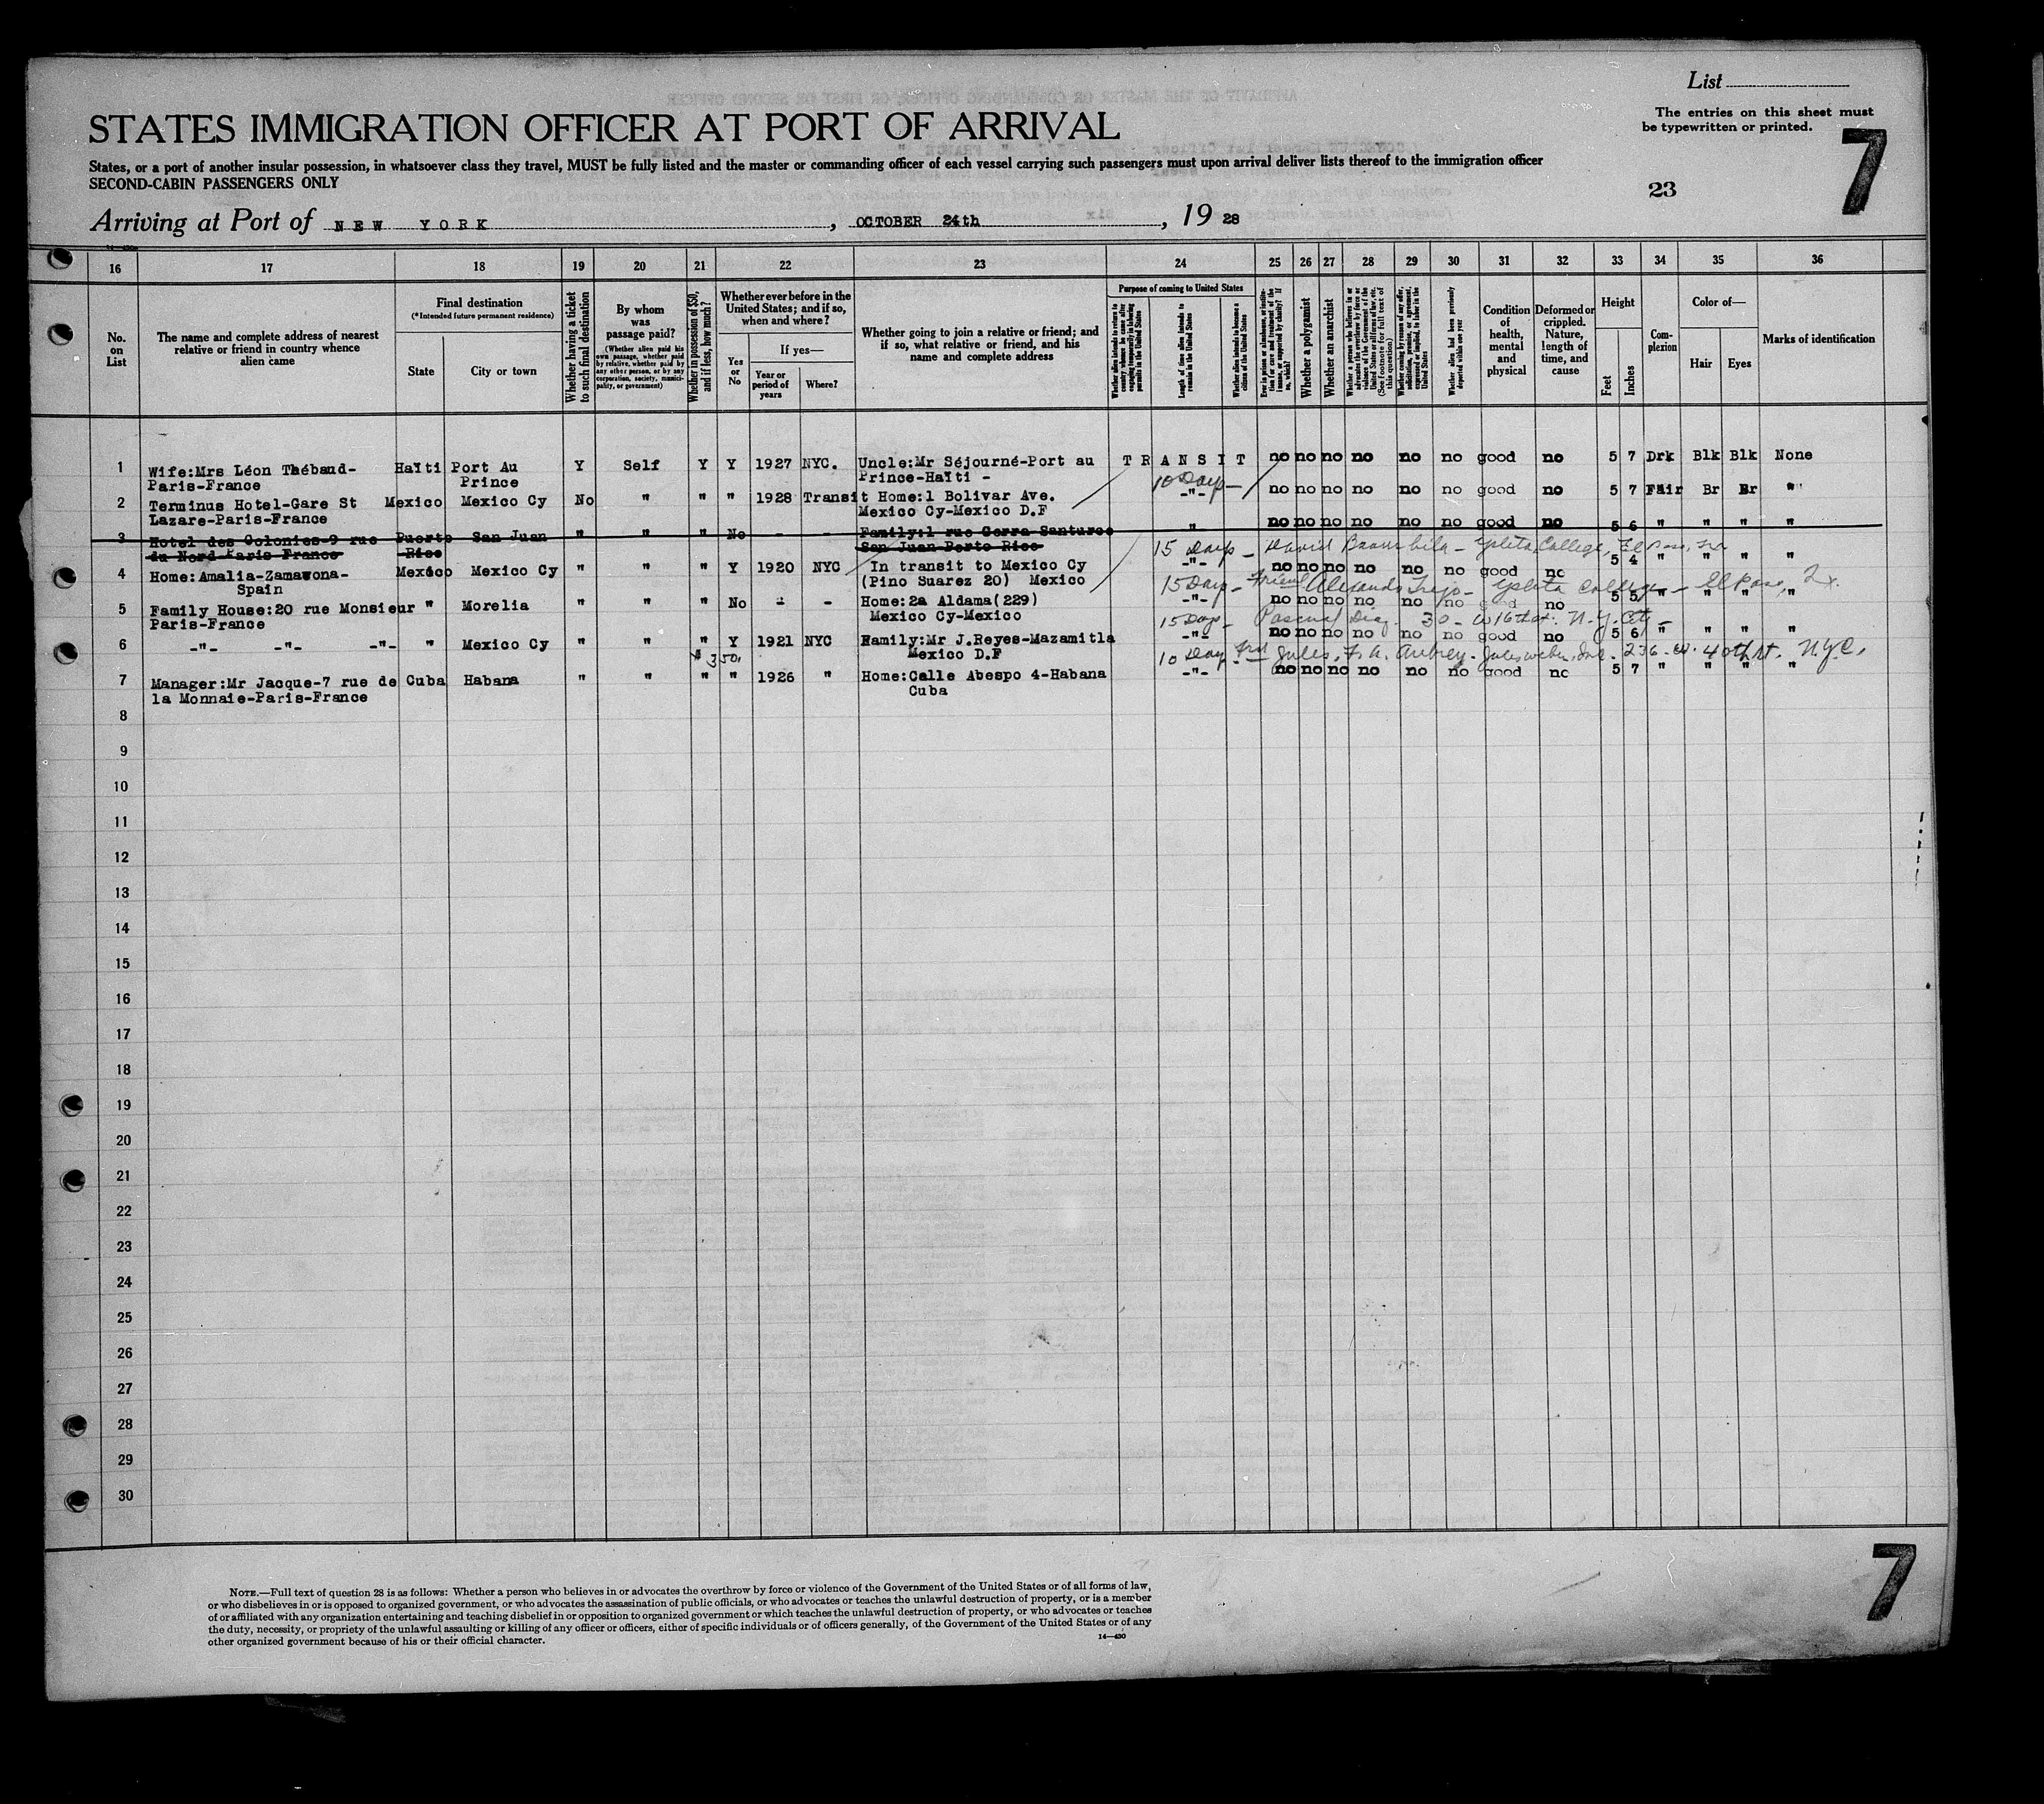 List
The entries on this sheet must
be typewritten or printed.
STATES IMMIGRATION OFFICER AT PORT OF ARRIVAL
7
States, or a port of another insular possession, in whatsoever class they travel, MUST be fully listed and the master or commanding officer of each vessel carrying such passengers must upon arrival deliver lists thereof to the immigration officer
SECOND-CABIN PASSENGERS ONLY
23
Arriving at Port of NEW YORK, OCTOBER 24th, 19 28
16 17 18 19 20 21 22 23 24 25 26 27 28 29 30 31 32 33 34 35 36
No. on List
The name and complete address of nearest relative or friend in country whence alien came
Final destination
(*Intended future permanent residence)
State
City or town
Whether having a ticket to such final destination
By whom was passage paid?
(Whether alien paid his own passage, whether paid by relative, whether paid by any other person, or by any corporation, society, municipality, or government)
Whether in possession of $50, and if less, how much?
Whether ever before in the United States; and if so, when and where?
Yes or No
If yes—
Year or period of years
Where?
Whether going to join a relative or friend; and if so, what relative or friend, and his name and complete address
Purpose of coming to United States
Whether alien intends to return to country whence he came after engaging temporarily in laboring pursuits in the United States
Length of time alien intends to remain in the United States
Whether alien intends to become a citizen of the United States
Whether a polygamist
Whether an anarchist
(See footnote for full text of this question)
Whether alien had been previously deported within one year
Condition of health, mental and physical
Deformed or crippled. Nature, length of time, and cause
Height
Feet
Inches
Complexion
Color of—
Hair
Eyes
Marks of identification
1 Wife:Mrs Léon Thébaud- Haïti Port Au Y Self Y Y 1927 NYC. Uncle:Mr Séjourné-Port au TRANSIT no no no no no no good no 5 7 Drk Blk Blk None
Paris-France Prince Prince-Haïti - 10 Days
2 Terminus Hotel-Gare St Mexico Mexico Cy No " " " 1928 Transit Home:1 Bolivar Ave. -"- no no no no no no good no 5 7 Fair Br Br "
Lazare-Paris-France Mexico Cy-Mexico D.F
3 Hotel des Colonies-9 rue Puerto San Juan " " " No - - Family:1 rue Cerra Santurce " no no no no no no good no 5 6 " " " "
du Nord Paris France Rico San Juan Porto Rico
15 Days - David - Ysleta College, El Paso,
4 Home:Amalia-Zamawona- Mexico Mexico Cy " " " Y 1920 NYC In transit to Mexico Cy -"- no no no no no no good no 5 4 " " " "
Spain (Pino Suarez 20) Mexico
15 Days - Friend Trejo - Ysleta College - El Paso, Tx.
5 Family House:20 rue Monsieur " Morelia " " " No - - Home:2a Aldama(229) -"- no no no no no no good no 5 5 " " " "
Paris-France Mexico Cy-Mexico
15 Days - Pascual Diaz - 30 - W 16th St. N.Y. City -
6 -"- -"- -"- " Mexico Cy " " " Y 1921 NYC Family:Mr J.Reyes-Mazamitla -"- no no no no no no good no 5 6 " " " "
Mexico D.F
$ 350, 10 Day Frd Jules, F. A. Aubrey - Jules Weber Inc - 236 - W. 40th St. N.Y.C.
7 Manager:Mr Jacque-7 rue de Cuba Habana " " " " 1926 " Home:Calle Abespo 4-Habana -"- no no no no no no good no 5 7 " " " "
la Monnaie-Paris-France Cuba
8
9
10
11
12
13
14
15
16
17
18
19
20
21
22
23
24
25
26
27
28
29
30
7
NOTE.—Full text of question 28 is as follows: Whether a person who believes in or advocates the overthrow by force or violence of the Government of the United States or of all forms of law,
or who disbelieves in or is opposed to organized government, or who advocates the assassination of public officials, or who advocates or teaches the unlawful destruction of property, or is a member
of or affiliated with any organization entertaining and teaching disbelief in or opposition to organized government or which teaches the unlawful destruction of property, or who advocates or teaches
the duty, necessity, or propriety of the unlawful assaulting or killing of any officer or officers, either of specific individuals or of officers generally, of the Government of the United States or of any
other organized government because of his or their official character.
14—430